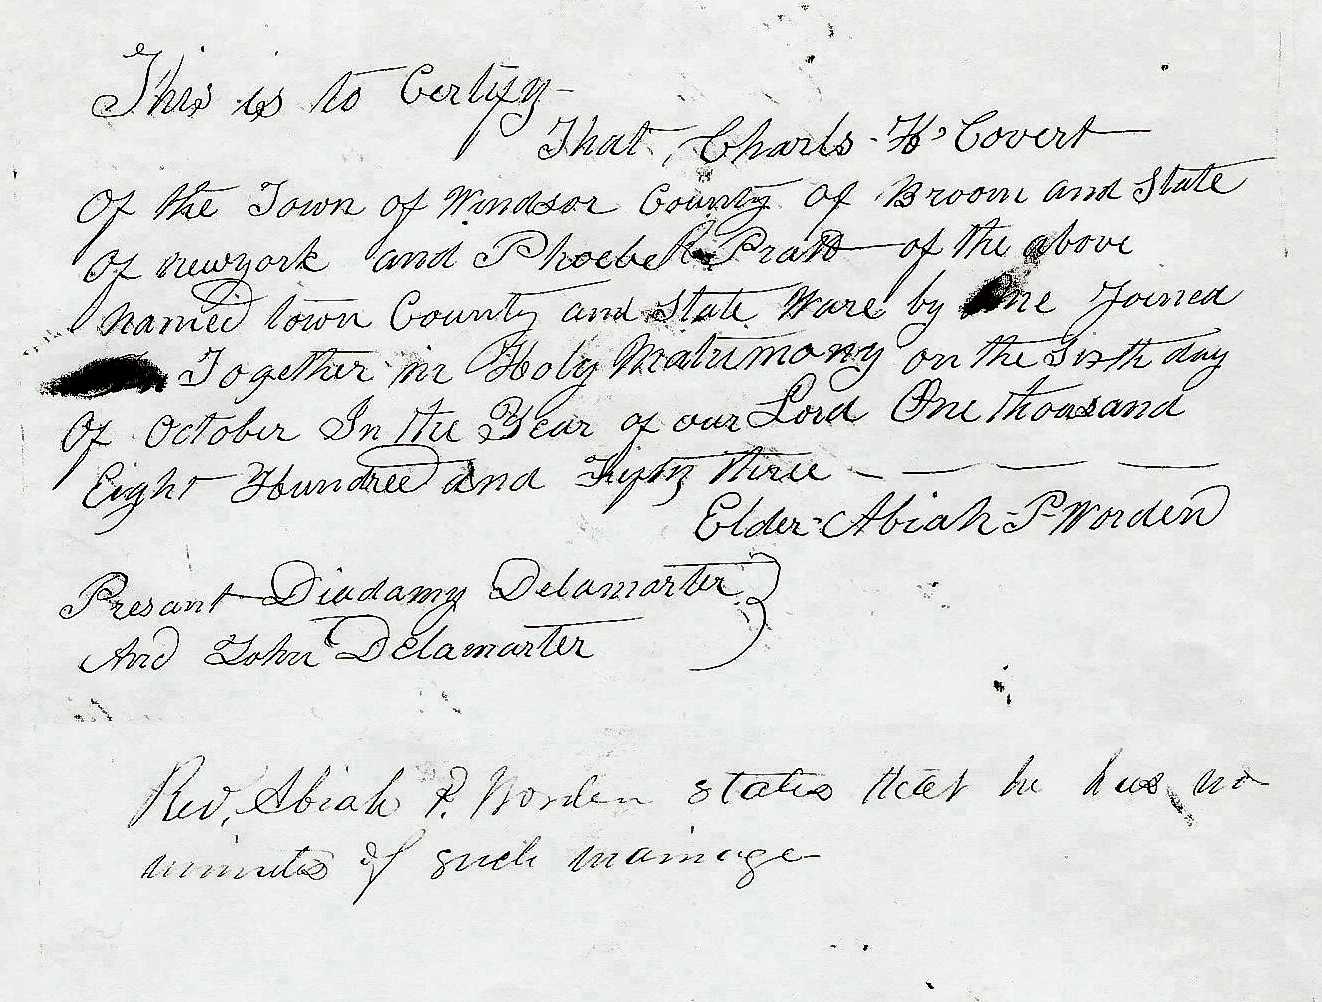 This is to Certify
That Charls H Covert
Of the Town of Windsor County of Broom and State
Of newyork and Phoebe R Pratt of the above
named town County and State Ware by me Joined
Together in Holy Matrimony on the Sixth day
Of October In the Year of our Lord One thousand
Eight Hundred and Fifty three
Elder Abiah P Worden
Presant Diadamy Delamarter
And John Delamarter
Rev. Abiah P. Worden states that he has no
minutes of such marriage